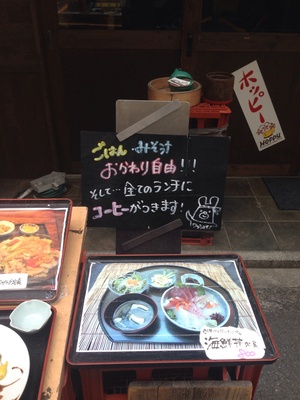 ごはん・みそ汁
おかわり自由!!!
そして…全てのランチに
コーヒーがつきます!
ホッピー
HOPPY
海鮮丼